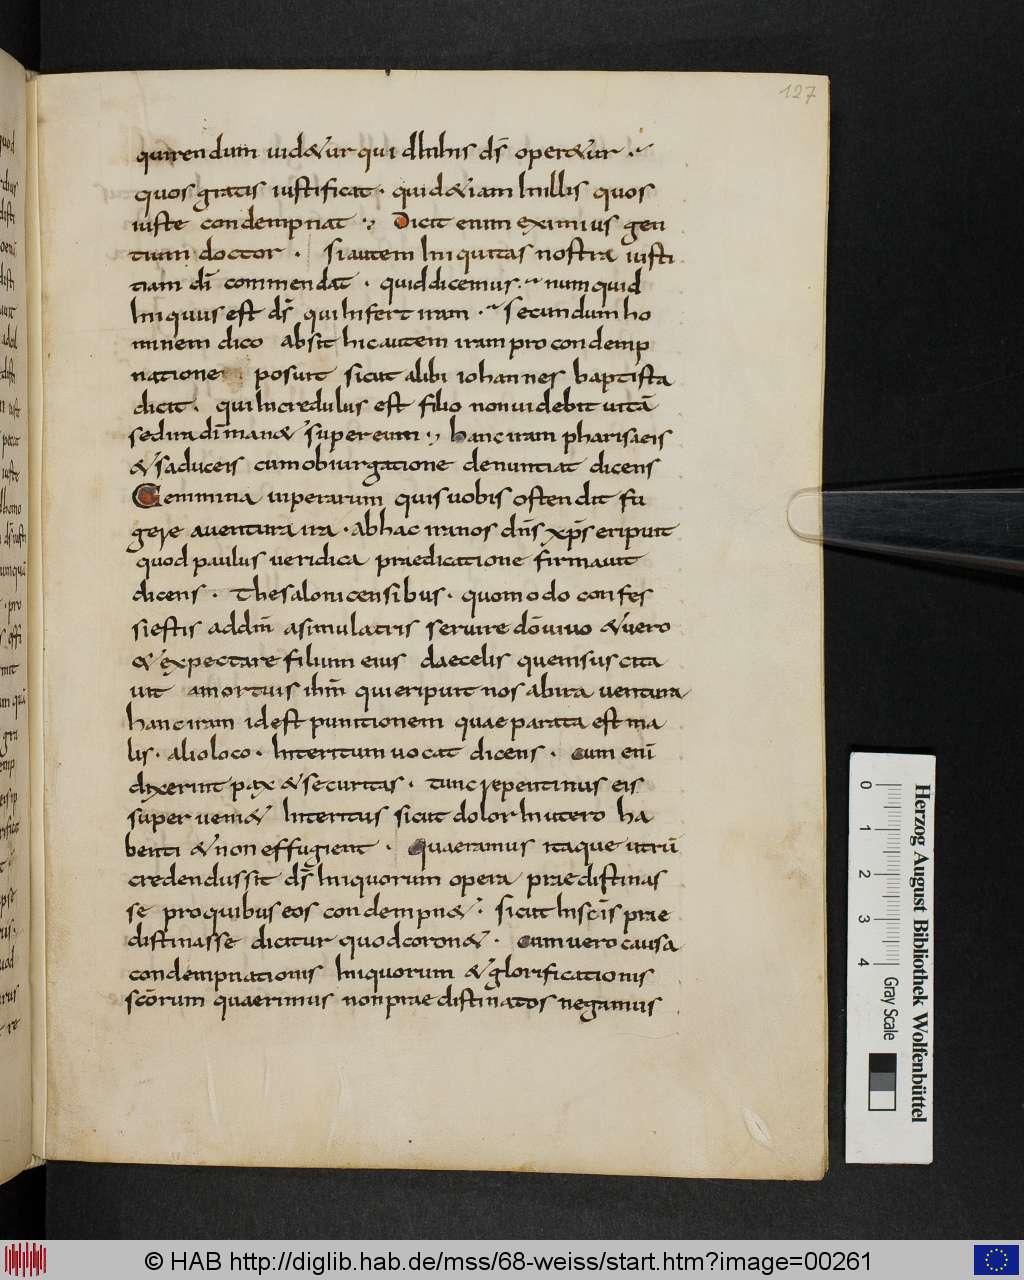 127
quirendum uid&ur qui dhihis ds̄ oper&ur
quos gratis iustificat · quid &iam Inillis quos
iuste condempnat Dicit enim eximius gen
tium doctor · si autem Iniquitas nostra iusti
tiam dī commendat · quid dicemus numquid
Iniquus est ds̄ qui Infert iram · secundum ho
minem dico absit hic autem iram pro condemp
natione posuit sicut alibi iohannes baptista
dicit · qui Incredulus est filio non uidebit uitā
sed ira dī man& super eum hanc iram pharisaeis
& saduceis cum obiurgatione denuntiat dicens
Gemmina uiperarum quis uobis ostendit fu
gere a uentura ira · ab hac ira nos dn̄s xp̄s eripuit
quod paulus ueridica praedicatione firmauit
dicens · Thesalonicensibus · quomodo confes
si estis ad dm̄ a simulacris seruire dō uiuo & uero
& expectare filium eius de caelis quem suscita
uit a mortuis ihm̄ qui eripuit nos ab ira uentura
hanc iram id est punitionem quae parata est ma
lis · alio loco · Interitum uocat dicens · Cum enī
dixerint pax & securitas · tunc repentinus eis
super ueni& Interitus sicut dolor In utero ha
benti & non effugient · Quaeramus itaque utrū
credendus sit ds̄ Iniquorum opera praedistinas
se pro quibus eos condempn& sicut In scīs prae
distinasse dicitur quod coron& · Cum uero causa
condempnationis Iniquorum & glorificationis
scōrum quaerimus non praedistinatos negamus
Herzog August Bibliothek Wolfenbüttel
0 1 2 3 4 Gray Scale
© HAB http://diglib.hab.de/mss/68-weiss/start.htm?image=00261